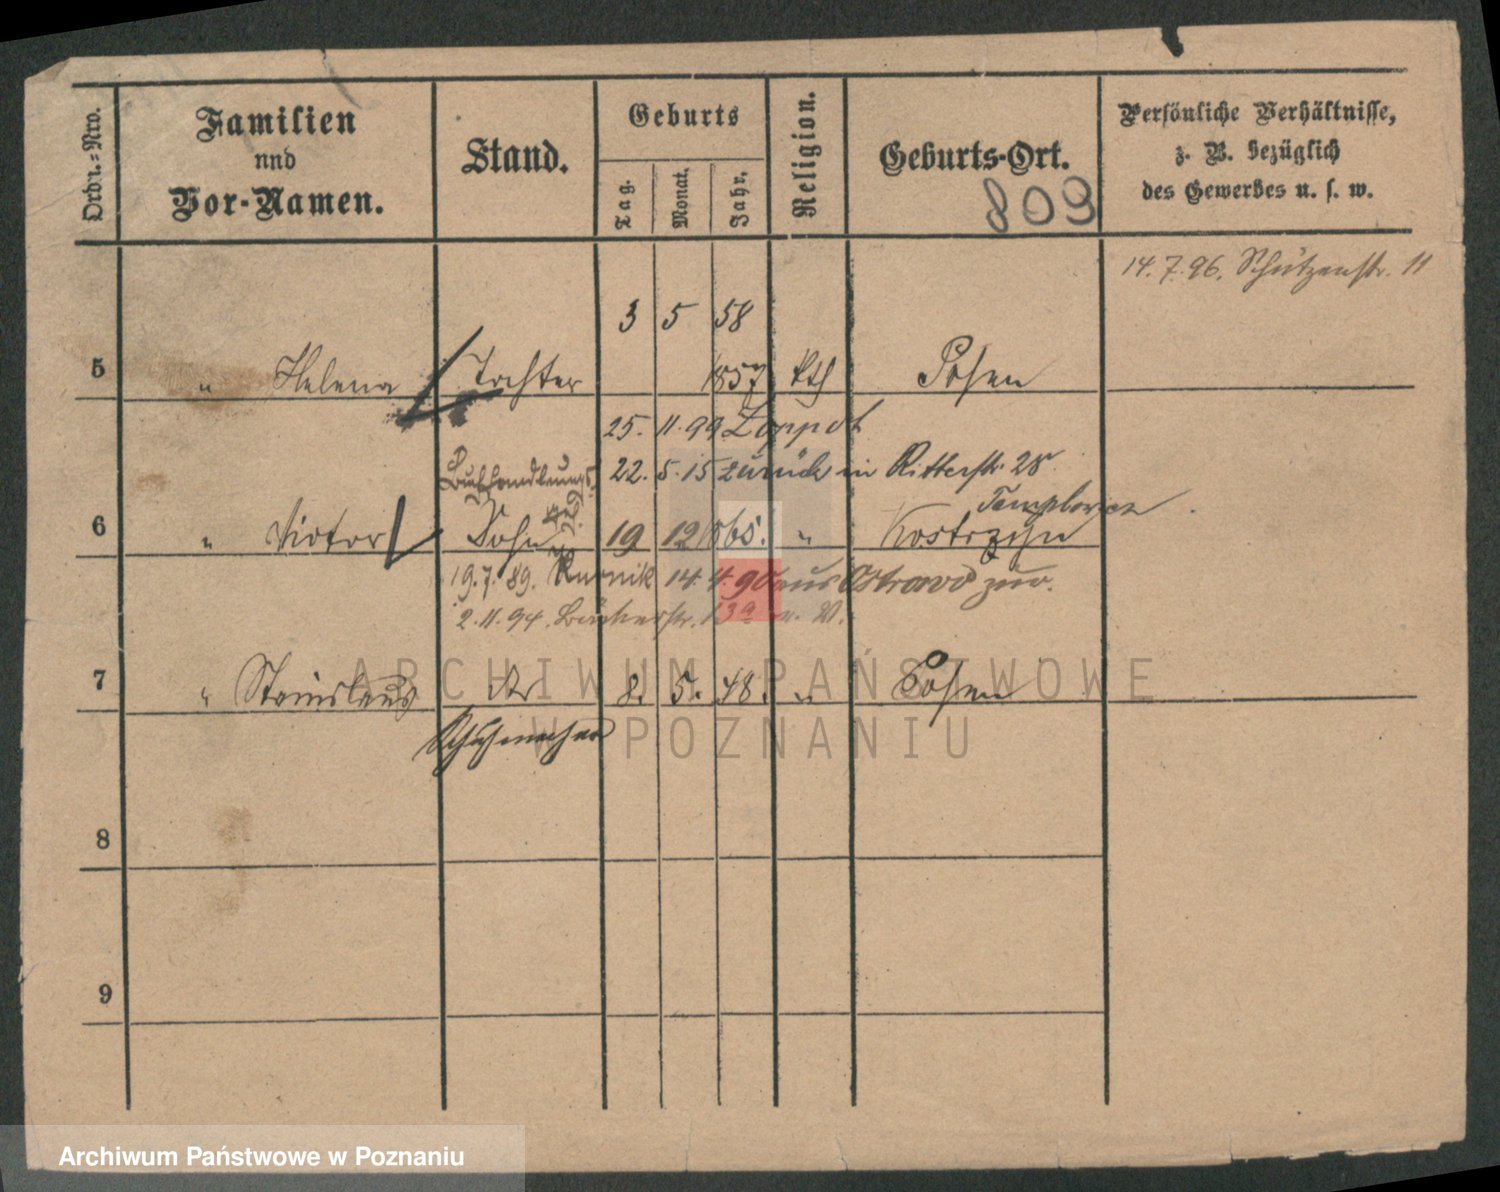 Ordn.-Nro.
Familien
und
Vor-Namen.
Stand.
Geburts
Tag.
Monat.
Jahr.
Religion.
Geburts-Ort.
809
Persönliche Verhältnisse,
z. B. bezüglich
des Gewerbes u. s. w.
14.7.96. Schützenstr. 11
3 5 58
5 " Helena Tochter 1857 Kth Posen
25. 11. 99 Zoppot
Buchhandlungs-
22. 5. 15 zurück in Ritterstr. 28
6 " Victor Sohn 19 12 65. " Kostrzyn
19.7.89. Kurnik 14. 4. 90 aus Ostrowo zur.
2.11.94. Bäckerstr. 13a
7 " Stanislaus 8. 5. 48. " Posen
Schuhmacher
8
9
ARCHIWUM PAŃSTWOWE
W POZNANIU
Archiwum Państwowe w Poznaniu